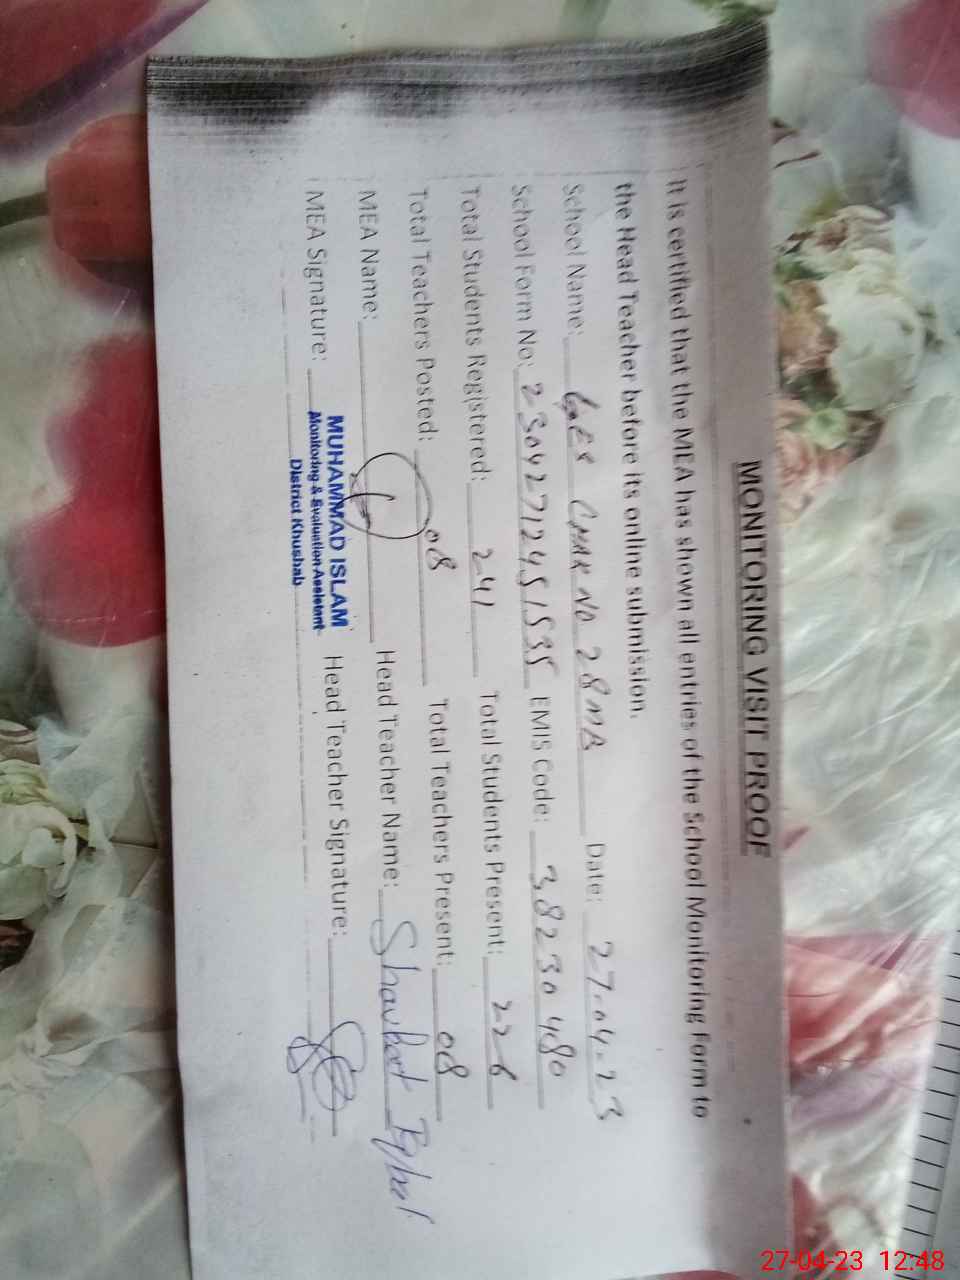 MONITORING VISIT PROOF
It is certified that the MEA has shown all entries of the School Monitoring Form to
the Head Teacher before its online submission.
School Name: GES CHAK NO 28 MB Date: 27-04-23
School Form No: 23042712451535 EMIS Code: 38230480
Total Students Registered: 241 Total Students Present: 226
Total Teachers Posted: 08 Total Teachers Present: 08
MEA Name: Head Teacher Name: Shaukat Iqbal
MUHAMMAD ISLAM
MEA Signature: Head Teacher Signature:
Monitoring & Evaluation Assistant
District Khushab
27-04-23 12:48